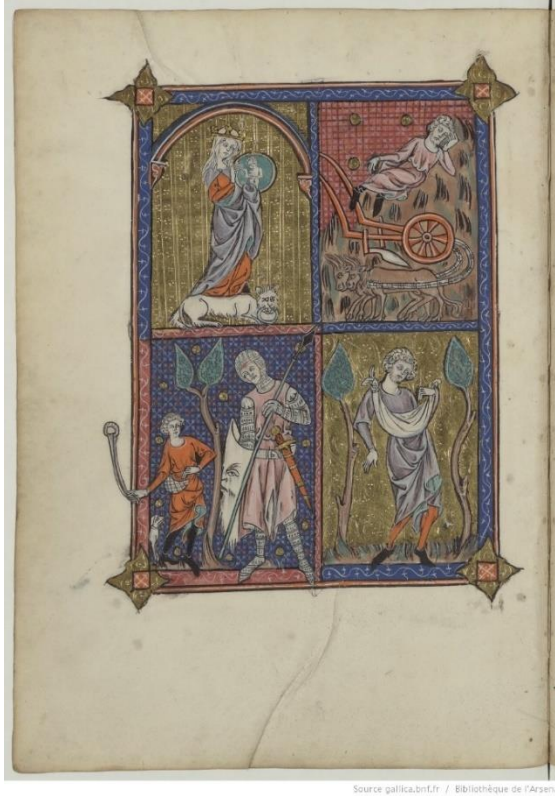 Source gallica.bnf.fr / Bibliothèque de l'Arsen